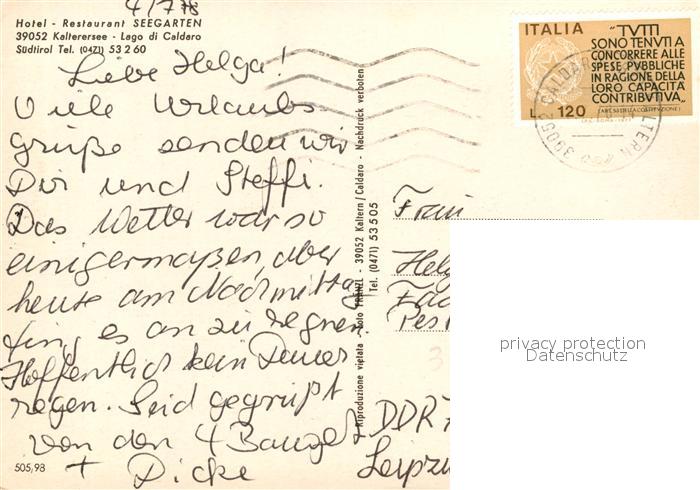 4/7 78
Hotel - Restaurant SEEGARTEN
39052 Kalterersee - Lago di Caldaro
Südtirol Tel. (0471) 53 2 60
Liebe Helga!
Viele Urlaubs
grüße senden wir
Dir und Steffi.
Das Wetter war so
einigermaßen, aber
heute am Nachmittag
fing es an zu regnen.
Hoffentlich kein Dauer
regen. Seid gegrüßt
von den 4
+ Dicke
505,98
Riproduzione vietata - Foto - 39052 Kaltern / Caldaro - Nachdruck verboten
Tel. (0471) 53505
ITALIA
"TUTTI
SONO TENUTI A
CONCORRERE ALLE
SPESE PUBBLICHE
IN RAGIONE DELLA
LORO CAPACITÀ
CONTRIBUTIVA"
(ART. 53 DELLA COSTITUZIONE)
L. 120
39052 CALDARO KALTERN
Frau
Helg
DDR 7
Leipzi
privacy protection
Datenschutz